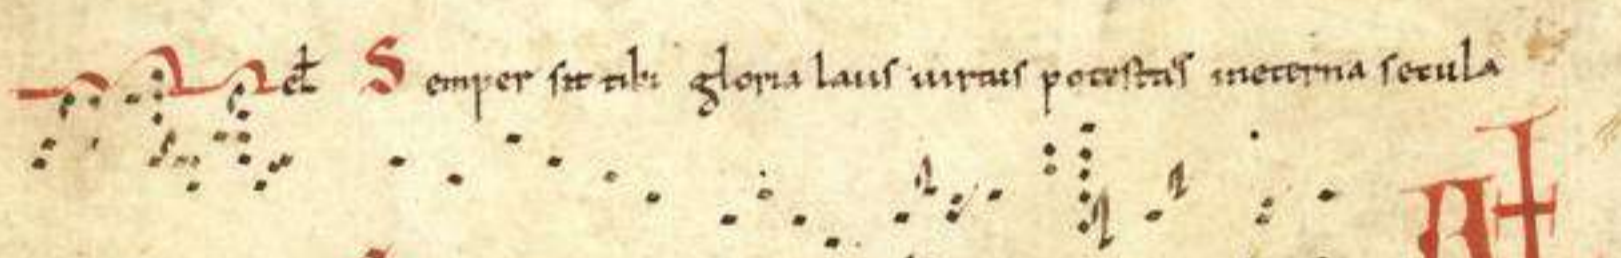 et Semper sit tibi gloria laus uirtus potestas ineterna secula